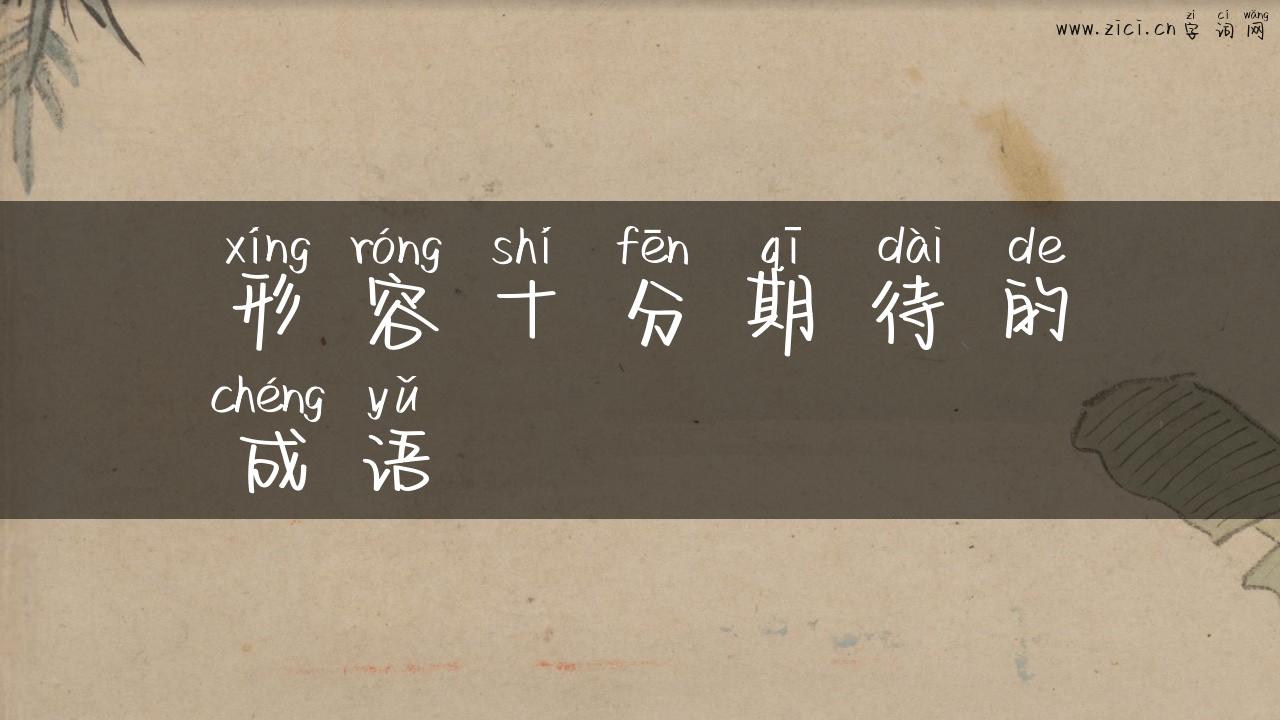 zì cí wǎng
www.zici.cn 字词网
xíng róng shí fēn qī dài de
形容十分期待的
chéng yǔ
成语